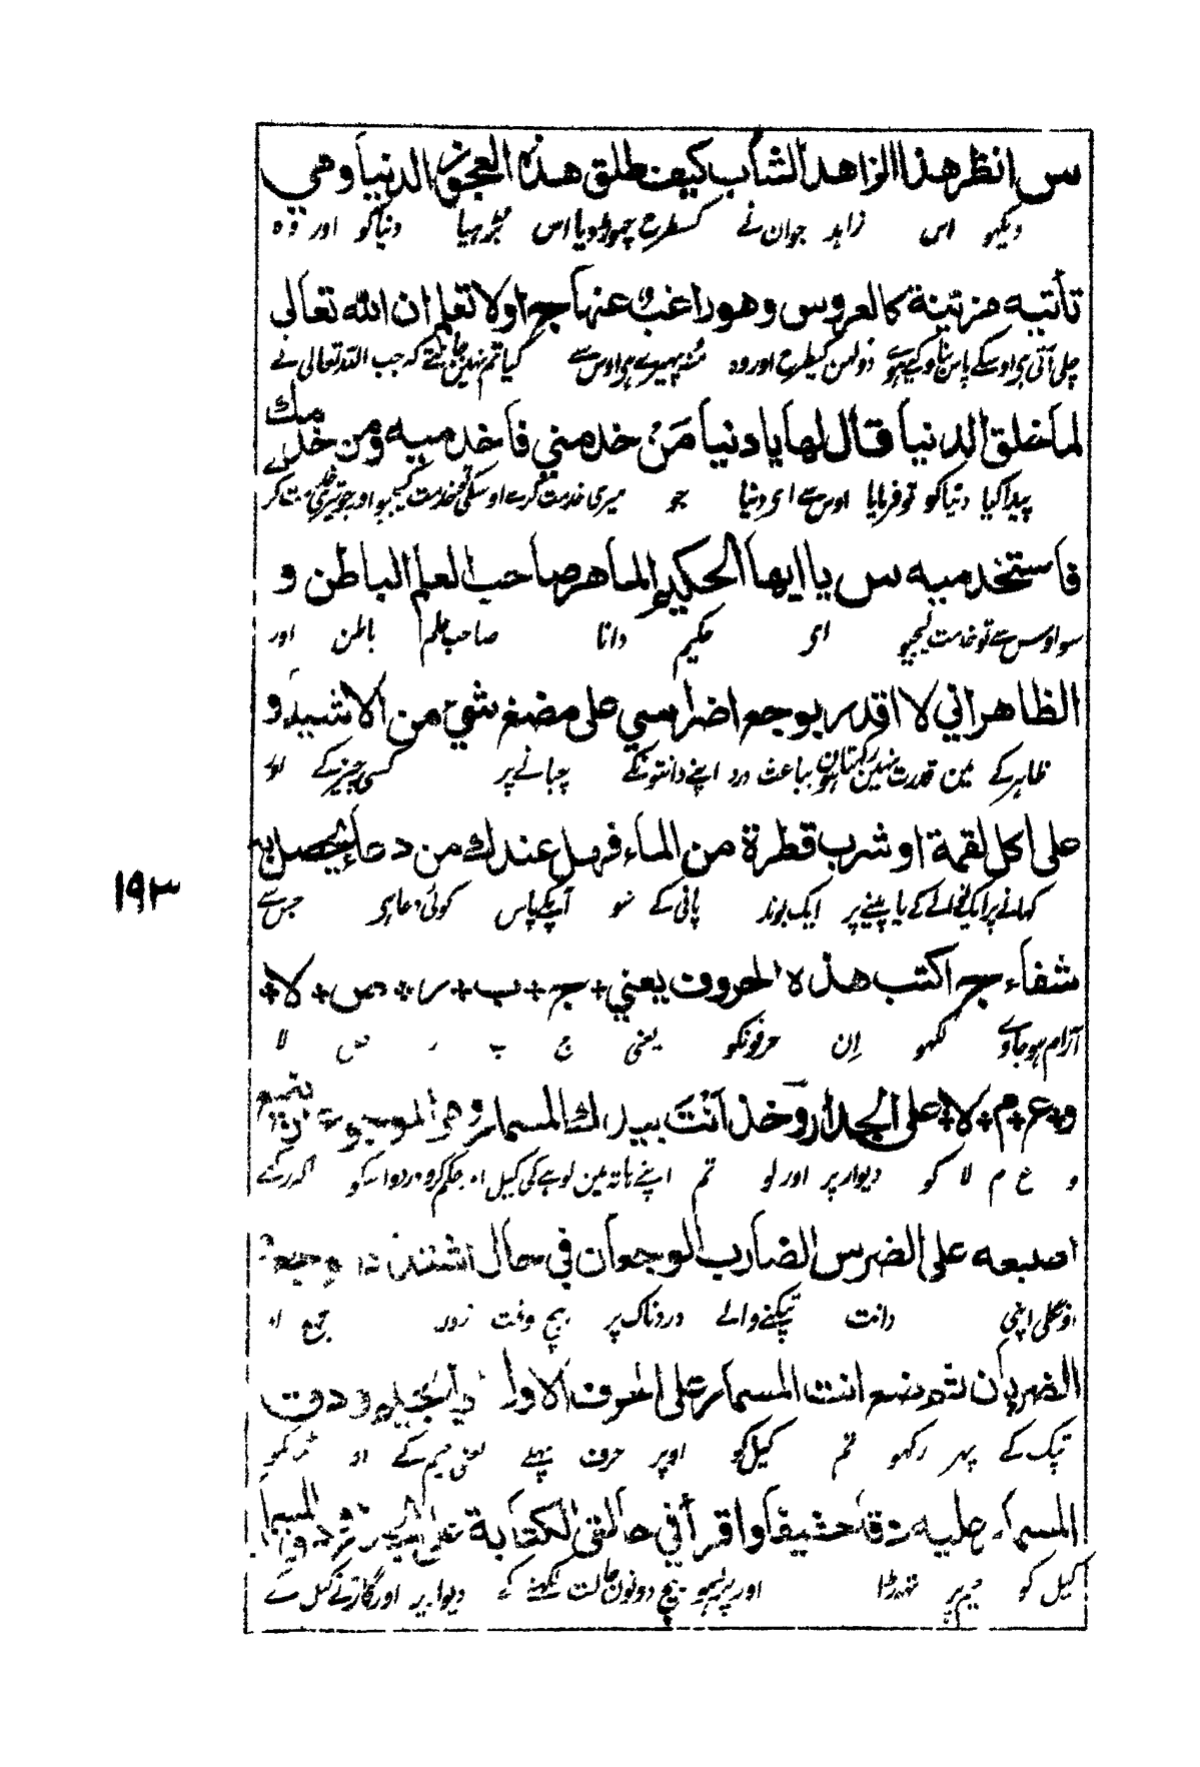 س انظر هذا الزاهد الشاب كيف طلق هذه العجوز الدنيا وهي
دیکهو اس زاہد جوان نے کسطرح چهوڑ دیا اس بڑہیا دنیاکو اور وہ
تأتيه مزينة كالعروس وهو راغب عنها ج اولا تعلم ان الله تعالى
چلی آتی ہی اوسکے پاس بناو کیے ہوے دولهن کیطرح اور وہ منہ پهیرے ہی اوس سے کیا تم نہین جانتے کہ جب اللہ تعالی نے
لما خلق الدنيا قال لها يا دنيا مَنْ خدمني فاخدميه ومن خدمك
پیدا کیا دنیا کو تو فرمایا اوس سے ای دنیا جو میری خدمت کرے اوسکی تو خدمت کیجیو اور جو تیری خدمت کرے
فاستخدميه س يا ايها الحكيم الماهر صاحب العلم الباطن و
سو اوس سے تو خدمت لیجیو ای حکیم دانا صاحب علم باطن اور
الظاهر اني لا اقدر بوجع اضراسي على مضغ شيء من الاشياء و
ظاہر کے مین قدرت نہین رکهتا ہون بباعث درد اپنے دانتونکے چبانے پر کسی چیز کے اور
على اكل لقمة او شرب قطرة من الماء فهل عندك من دعاء يحصل به
کهانے پر ایک نوالے کے یا پینے پر ایک بوند پانی کے سو آپکے پاس کوئی دعا ہی جس سے
۱۹۳
شفاء ج اكتب هذه الحروف يعني + ج + ب + ر + ص + لا +
آرام ہو جاوے لکهو اِن حرفونکو یعنی ج ب ر ص لا
و + ع + م + لا + على الجدار وخذ اَنْتَ بيدك المسمار وهو الموجوع ان يضع
و ع م لا کو دیوار پر اور لو تم اپنے ہاتہ مین لوہے کی کیل اور حکم کرو درد والے کو کہ رکهے
اصبعه على الضرس الضارب الوجعان في حال اشتداد وجيعه
اونگلی اپنی دانت ٹپکنے والے دردناک پر بیچ وقت زور
الضربان ثم ضع انت المسمار على الحرف الاول ودق
ٹپک کے پهر رکهو تم کیل کو اوپر حرف پہلے یعنی جیم کے اور ٹهوکو
المسمار عليه دقا خفيفا واقرأ في حالتي الكتابة على الجدار
کیل کو جیم پر تهوڑا اور پڑہو بیچ دونون حالت لکهنے کے دیوار پر اور گاڑنے کیل کے